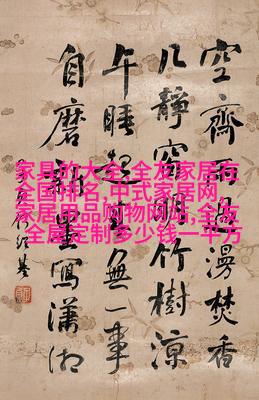 空齋漫焚香
几靜窗明竹樹涼
午睡起來無一事
自磨墨寫瀟湘
家具的大全,全友家居在
全国排名,中式家居网,
家居用品购物网站,全友
全屋定制多少钱一平方